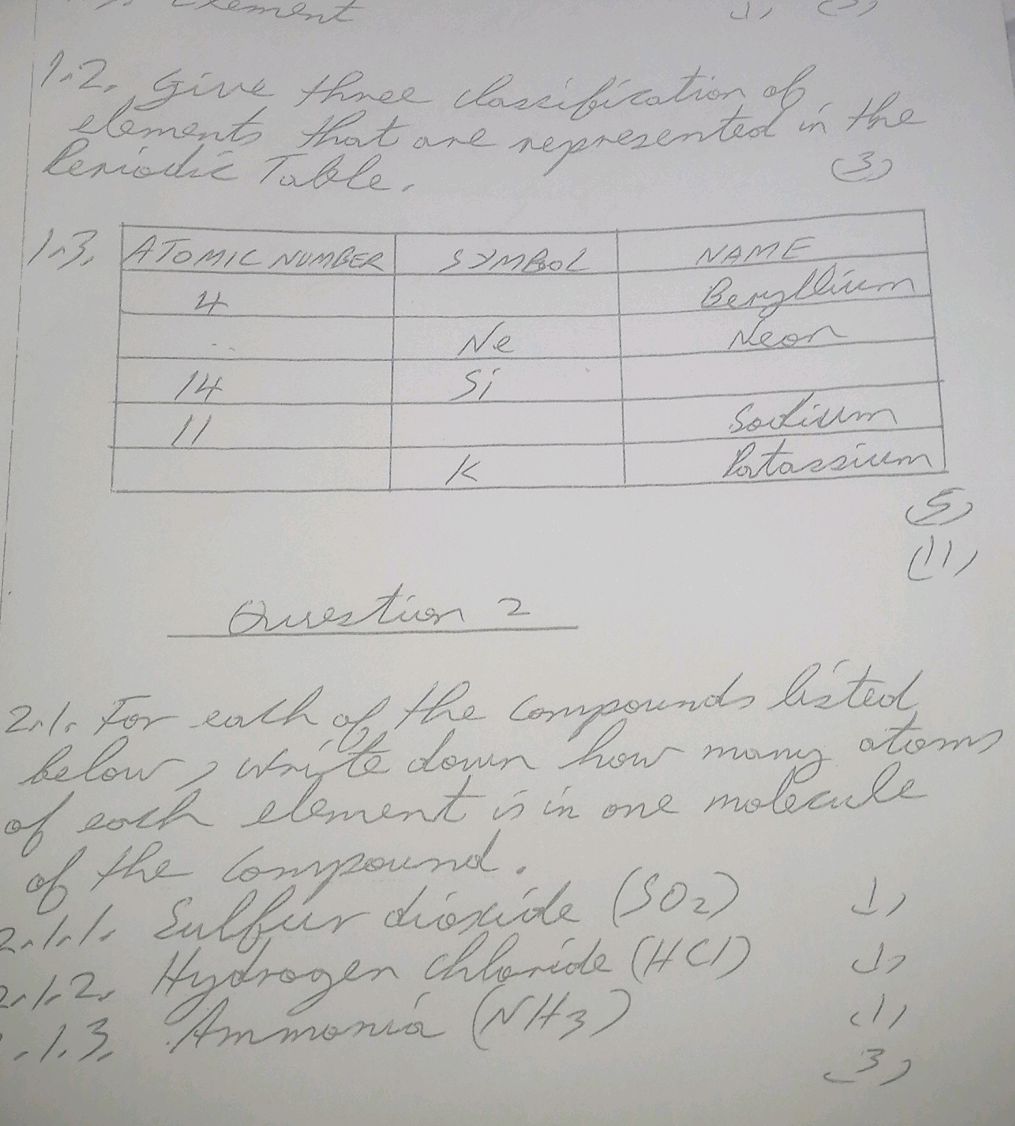 Element (3)
1.2. Give three classification of
elements that are represented in the
Periodic Table. (3)
1.3. ATOMIC NUMBER SYMBOL NAME
4 Beryllium
Ne Neon
14 Si
11 Sodium
K Potassium
(5)
(11)
Question 2
2.1. For each of the compounds listed
below, write down how many atoms
of each element is in one molecule
of the compound.
2.1.1. Sulfur dioxide (SO2) (1)
2.1.2. Hydrogen chloride (HCl) (1)
.1.3. Ammonia (NH3) (1)
(3)